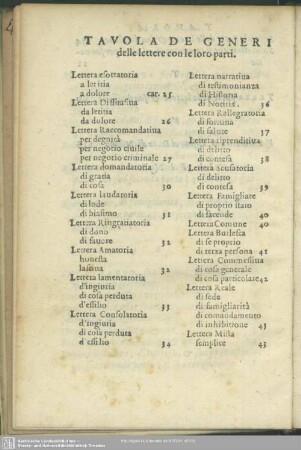 TAVOLA DE GENERI
delle lettere con le loro parti.
Lettera essottatoria
a letitia
a dolore car. 25
Lettera Dissuasiua
da letitia
da dolore 26
Lettera Raccomandatiua
per degnità
per negotio ciuile
per negotio criminale 27
Lettera domandatoria
di gratia
di cosa 30
Lettera laudatoria
di lode
di biasimo 31
Lettera Ringratiatoria
di dono
di fauore 32
Lettera Amatoria
honesta
lasciua 32
Lettera lamentatoria
d'ingiuria
di cosa perduta
d'essilio 33
Lettera Consolatoria
d'ingiuria
di cosa perduta
d'essilio 34
Lettera narratiua
di testimonianza
di Historia
di Noticia. 36
Lettera Rallegratoria
di fortuna
di salute 37
Lettera riprenditiua
di delitto
di contesa 38
Lettera accusatoria
di delitto
di contesa 39
Lettera Famigliare
di proprio stato
di facende 40
Lettera Comune 40
Lettera Burlesca
di se proprio
di terza persona 41
Lettera Commessiua
di cosa generale
di cosa particolare 42
Lettera Reale
di fede
di famigliarità
di comandamento
di inhibitione 43
Lettera Mista
semplice 43